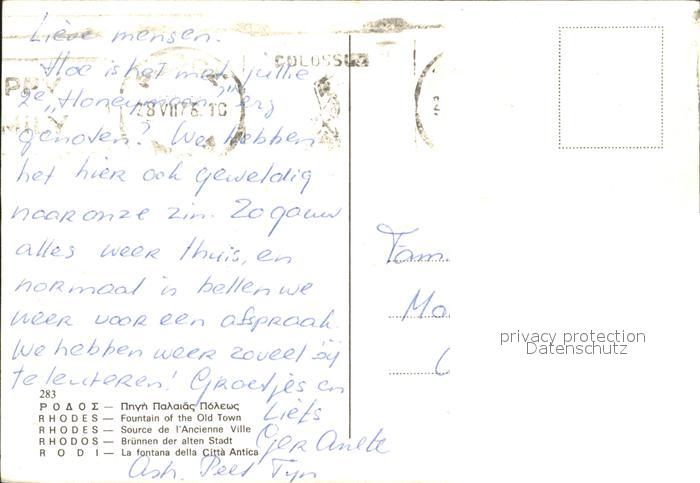 Lieve mensen.
COLOSSUS
Hoe is het met jullie
2e "Honeymoon?" erg
28 VII 76. 10
genoten? We hebben
het hier ook geweldig
naar onze zin. Zo gauw
alles weer thuis, en
normaal is bellen we
weer voor een afspraak.
We hebben weer zoveel bij
te leuteren! Groetjes en
Liefs
Ger Anete
Peet Tyn
Fam.
Mo
privacy protection
Datenschutz
283
ΡΟΔΟΣ — Πηγή Παλαιᾶς Πόλεως
RHODES — Fountain of the Old Town
RHODES — Source de l'Ancienne Ville
RHODOS — Brünnen der alten Stadt
RODI — La fontana della Città Antica